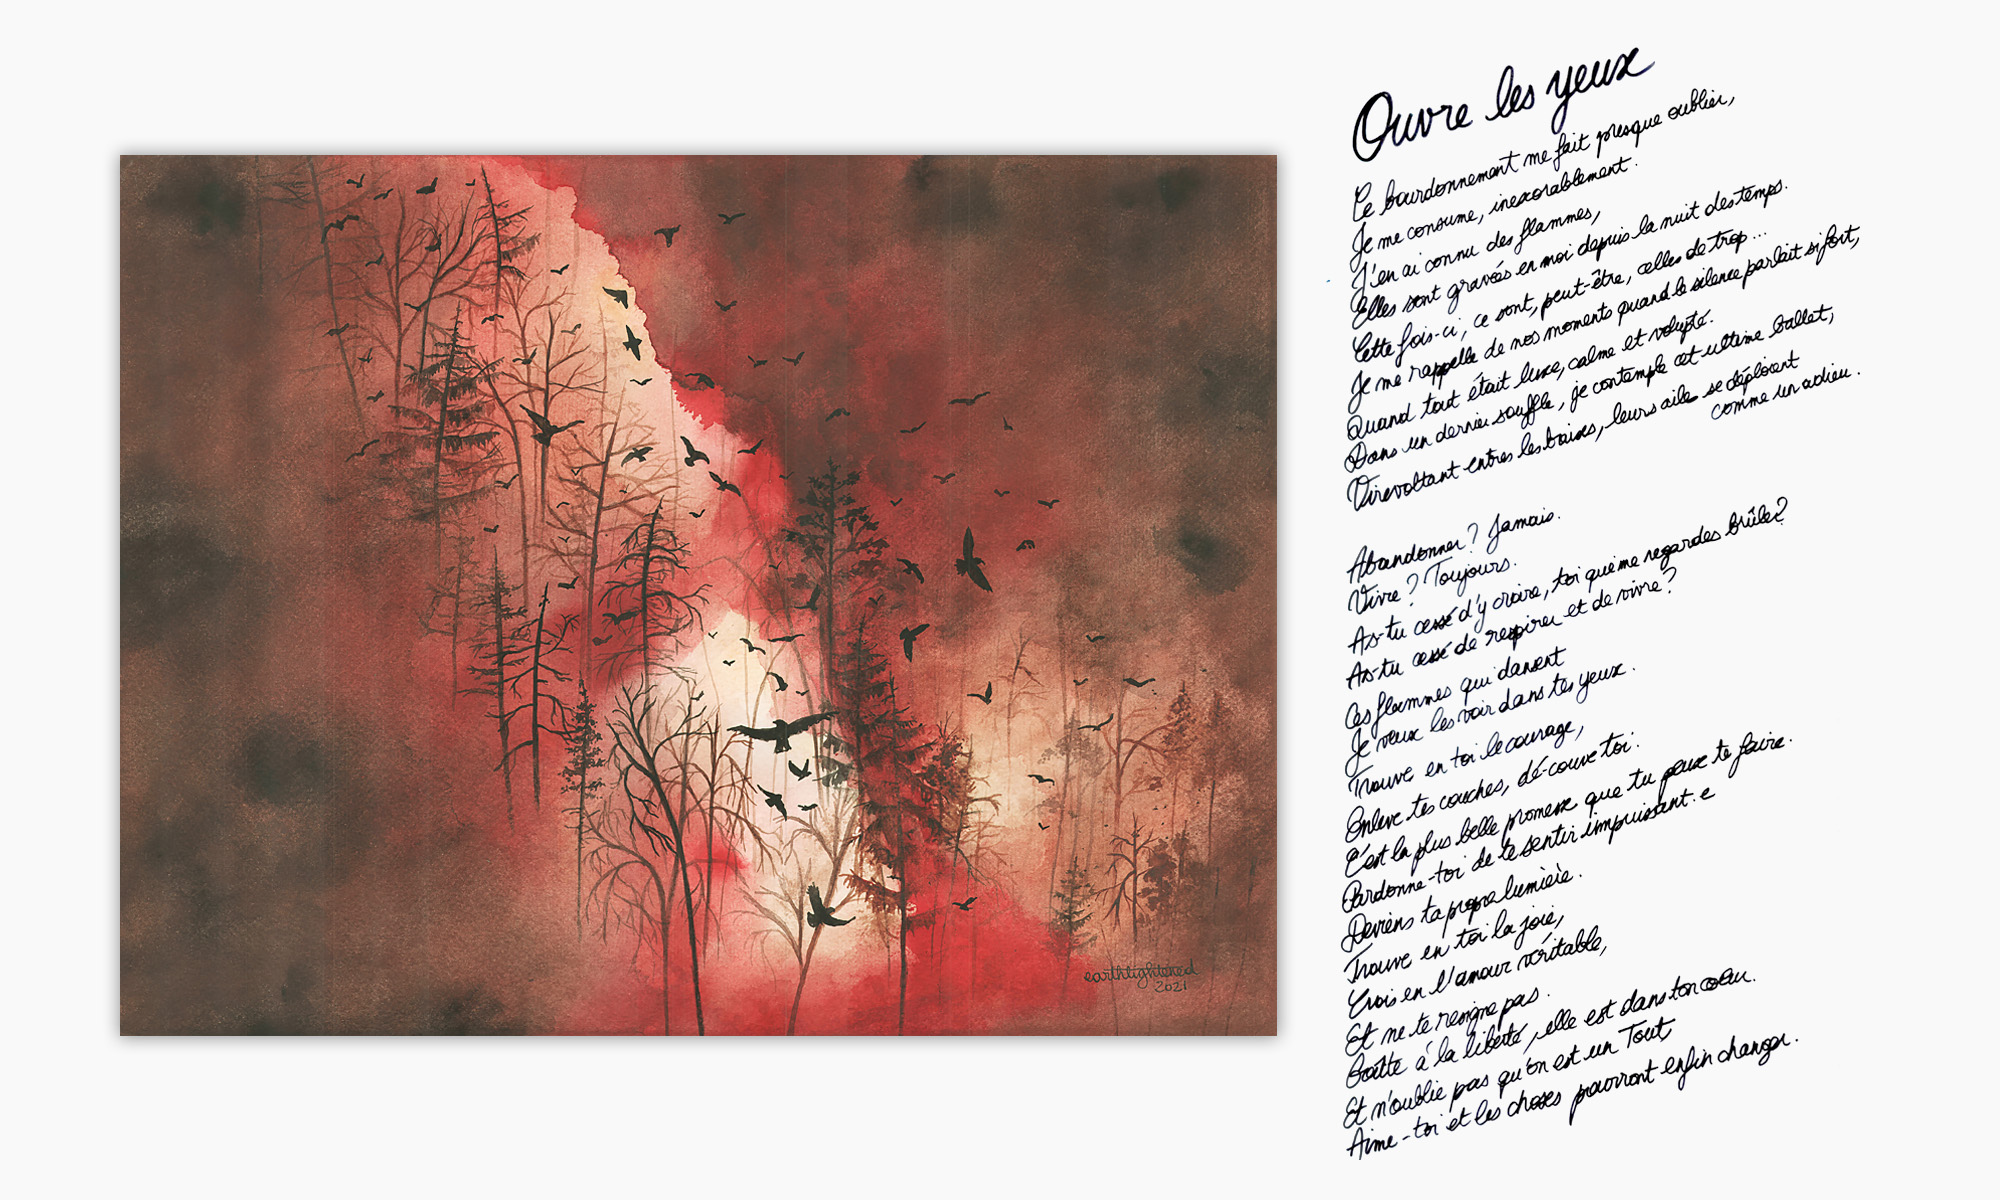 earthlightened
2021
Ouvre les yeux
Ce bourdonnement me fait presque oublier,
Je me consume, inexorablement.
J'en ai connu des flammes,
Elles sont gravées en moi depuis la nuit des temps.
Cette fois-ci, ce sont, peut-être, celles de trop...
Je me rappelle de nos moments quand le silence parlait si fort,
Quand tout était luxe, calme et volupté.
Dans un dernier souffle, je contemple cet ultime ballet,
Virevoltant entres les braises, leurs ailes se déploient
comme un adieu.
Abandonner? Jamais.
Vivre? Toujours.
As-tu cessé d'y croire, toi qui me regardes brûler?
As-tu cessé de respirer et de vivre?
Ces flammes qui dansent
Je veux les voir dans tes yeux.
Trouve en toi le courage,
Enlève tes couches, dé-couvre toi.
C'est la plus belle promesse que tu peux te faire.
Pardonne-toi de te sentir impuissant.e
Deviens ta propre lumière.
Trouve en toi la joie,
Crois en l'amour véritable,
Et ne te resigne pas.
Goûte à la liberté, elle est dans ton cœur.
Et n'oublie pas qu'on est un Tout,
Aime-toi et les choses pourront enfin changer.